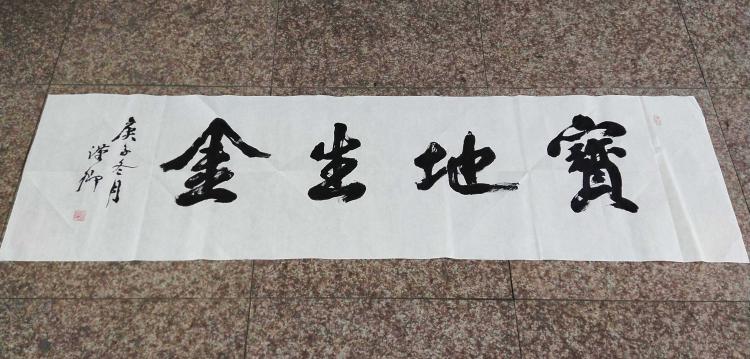 寶地生金
庚子冬月
漢卿